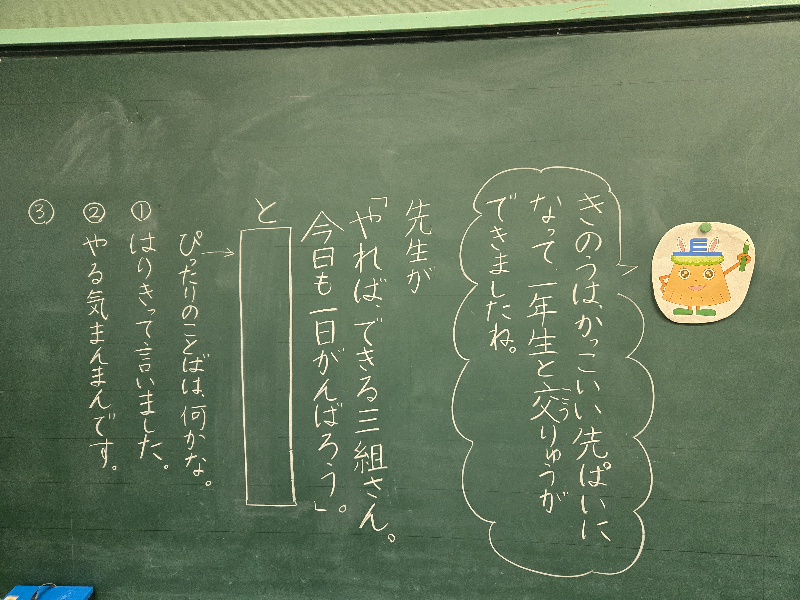 きのうは、かっこいい先ぱいに
なって、一年生と交りゅうが
こう
できましたね。
先生が
「やればできる三組さん。
今日も一日がんばろう」。
と
ぴったりのことばは、何かな。
①はりきって言いました。
②やる気まんまんです。
③